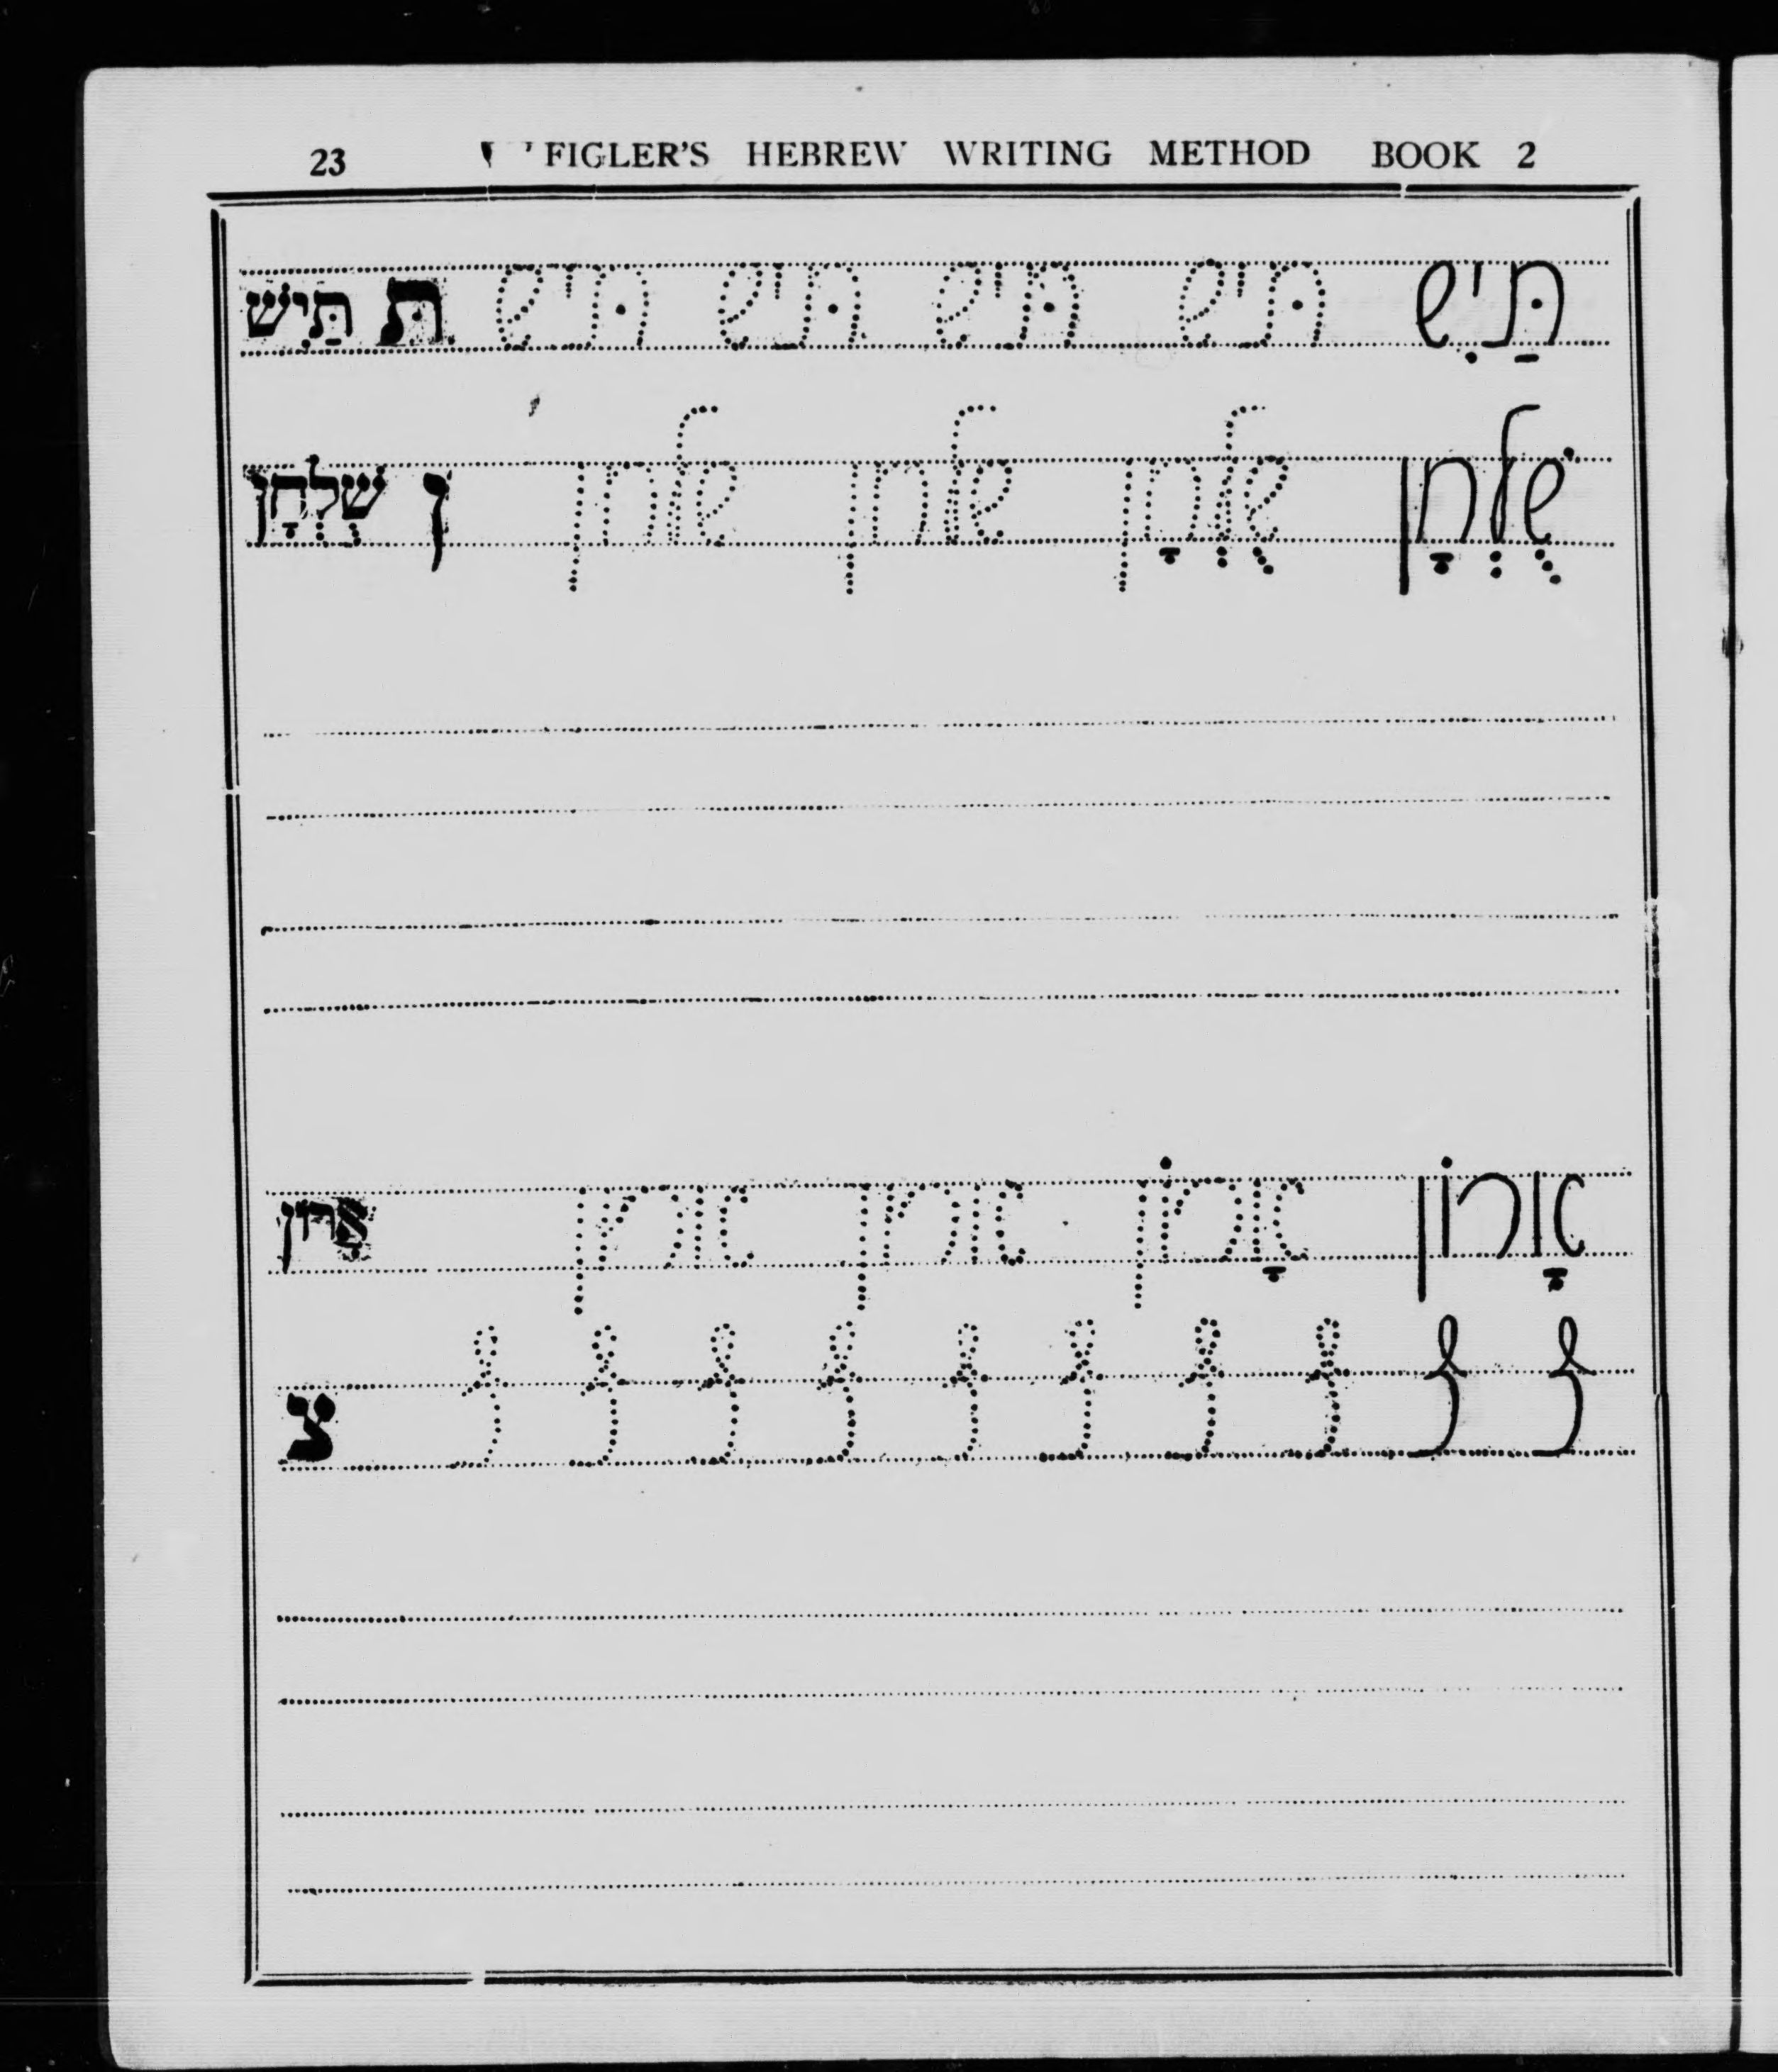 23 FIGLER'S HEBREW WRITING METHOD BOOK 2
תַּיִשׁ תיש תיש תיש תיש תּ תַּיִשׁ
שֻׁלְחָן שֻלְחָן שלחן שלחן ן שֻׁלְחָן
אָרוֹן אָרוֹן ארון ארון אָרוֹן
צ צ צ צ צ צ צ צ צ צ צ